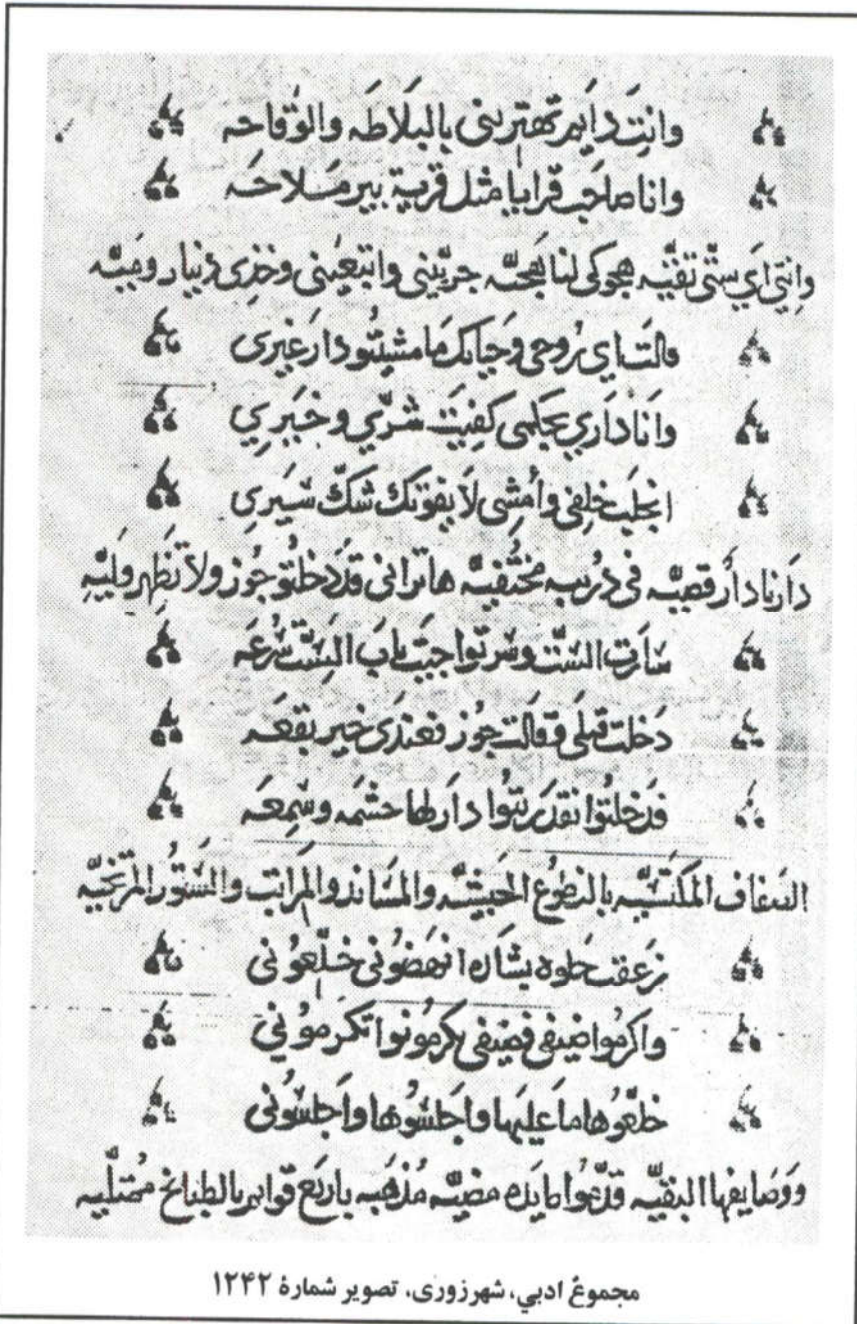 وانت دايم تهتريني بالبلاطه والوقاحه
وانا صاحب قرايا مثل قرية بير ملاحه
وانتي اي ستي تقيه هجوكي لنا بهجه جريني واتبعيني وخذي دينار وميه
قالت اي روحي وحياتك ما مشيتو دار غيري
وانا داري بحيلهي كفيت شري وخيري
انجلب خلفي وامشي لا يفوتك شك سيري
دارنا دار قصيه في دريبه مختفيه هاتراني قد دخلتو جوز ولا تظهر وليه
سارت الست وسرتو اجيت باب الست سرعه
دخلت قبلي وقالت جوز فعندي خير بقعه
قد خلتوا نقدريتوا دار لها حشمه وسمعه
المكتسيه بالنطوع الحبشيه والمساند والمراتب والستور المرتخيه
زعقت حلوه بشاره انهضوني خلعوني
واكرموا ضيفي فضيفي كرمونوا تكرموني
خلعوها ما عليها واجلسوها واجلسوني
ووصايفها البقيه قدموا مايده مضيه مذهبه باربع قوايم بالطبايخ ممتليه
مجموع ادبي، شهرزوری، تصویر شمارهٔ ۱۲۴۲